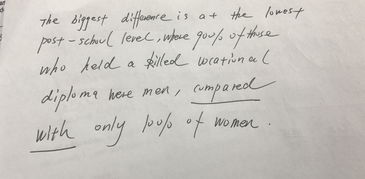 The biggest difference is at the lowest
post-school level, where 90% of those
who held a skilled vocational
diploma were men, compared
with only 10% of women.